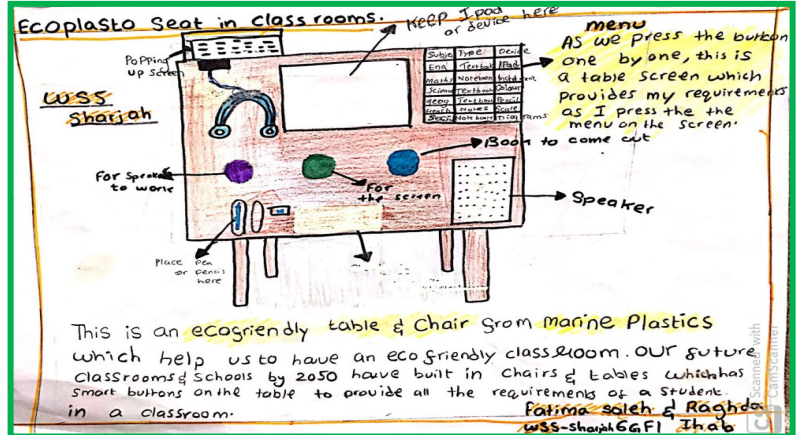 Ecoplasto Seat in Class rooms.
KEEP Ipad
or device here
menu
As we press the button
one by one, this is
a table screen which
provides my requirements
as I press the the
menu on the screen.
Popping
up screen
WSS
Sharjah
Type
Eng Textbook iPad
maths Notebook
Science Textbook
Textbook Pencil
Notes Scale
Book to come out
For Speaker
to work
For
the screen
Speaker
Place Pen
or Pencil
here
This is an ecogriendly table & Chair from marine Plastics
which help us to have an eco friendly classroom. Our future
Classrooms & Schools by 2050 have built in Chairs & tables which has
smart buttons on the table to provide all the requirements of a Student
in a classroom.
Fatima Saleh & Raghda
WSS-Sharjah 6GF1 Ihab
Scanned with
CamScanner